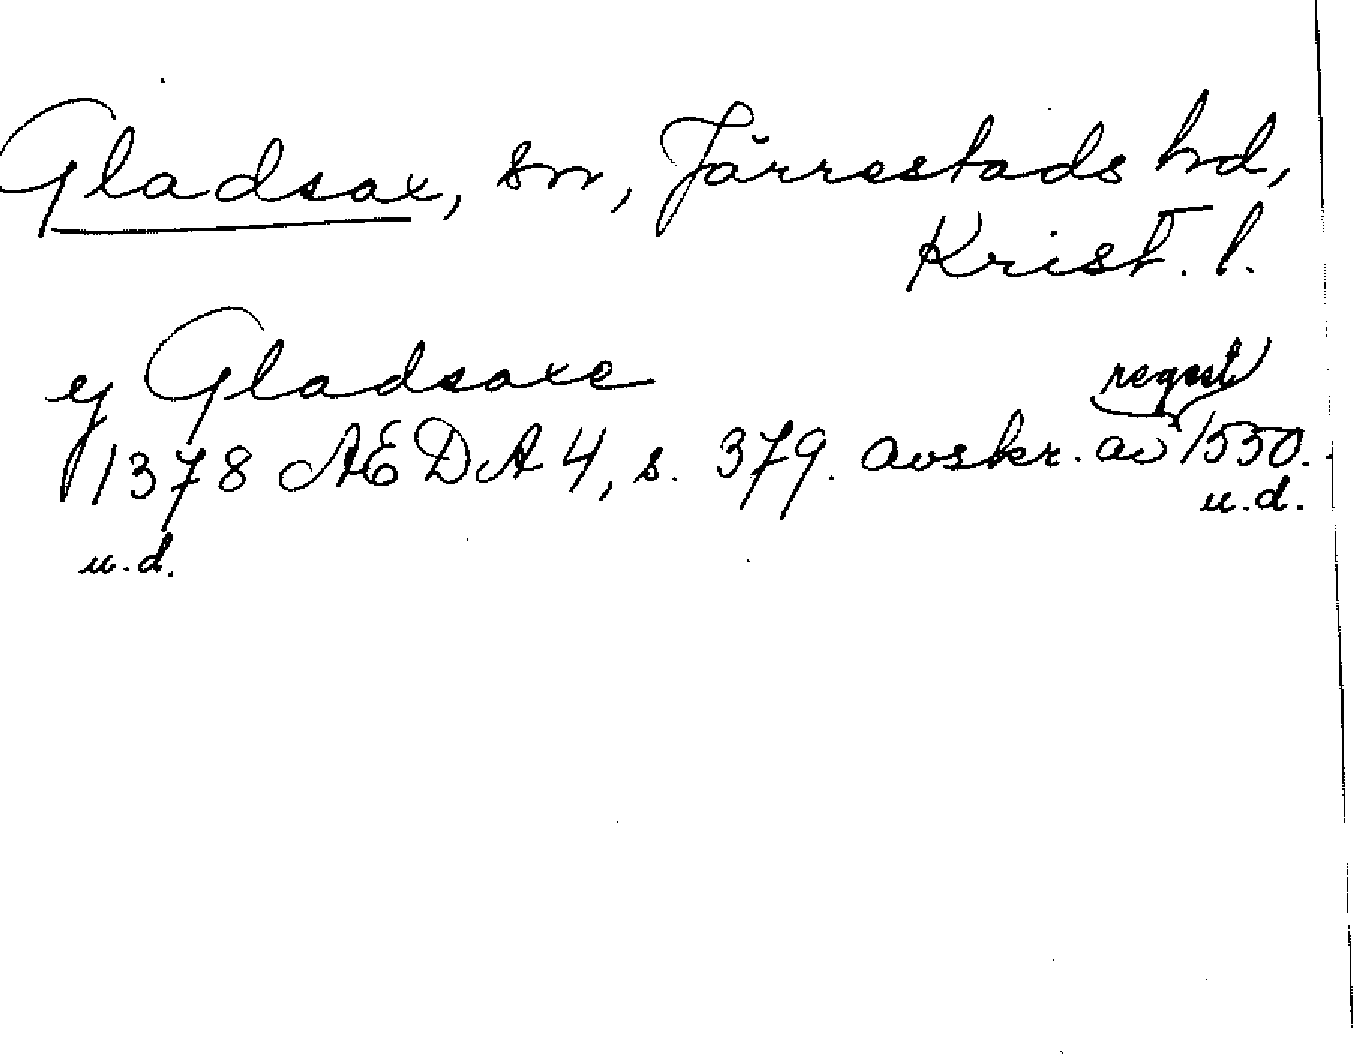 Gladsax, sn, Järrestads hd,
Krist. l.
y Gladsaxe
regest
1378 ÆDA 4, s. 379. avskr. av 1550.
u.d.
u.d.